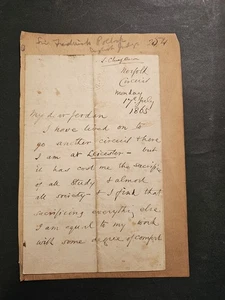 Sir Frederick Pollock
54
Norfolk
Circuit
Monday
17th July
1865
My dear Gordon
I have lived on to
go another circuit there
I am at Leicester - but
it has cost me the sacrifice
of all study & almost
all society - & I find that
sacrificing everything else
I am equal to my work
with some degree of comfort